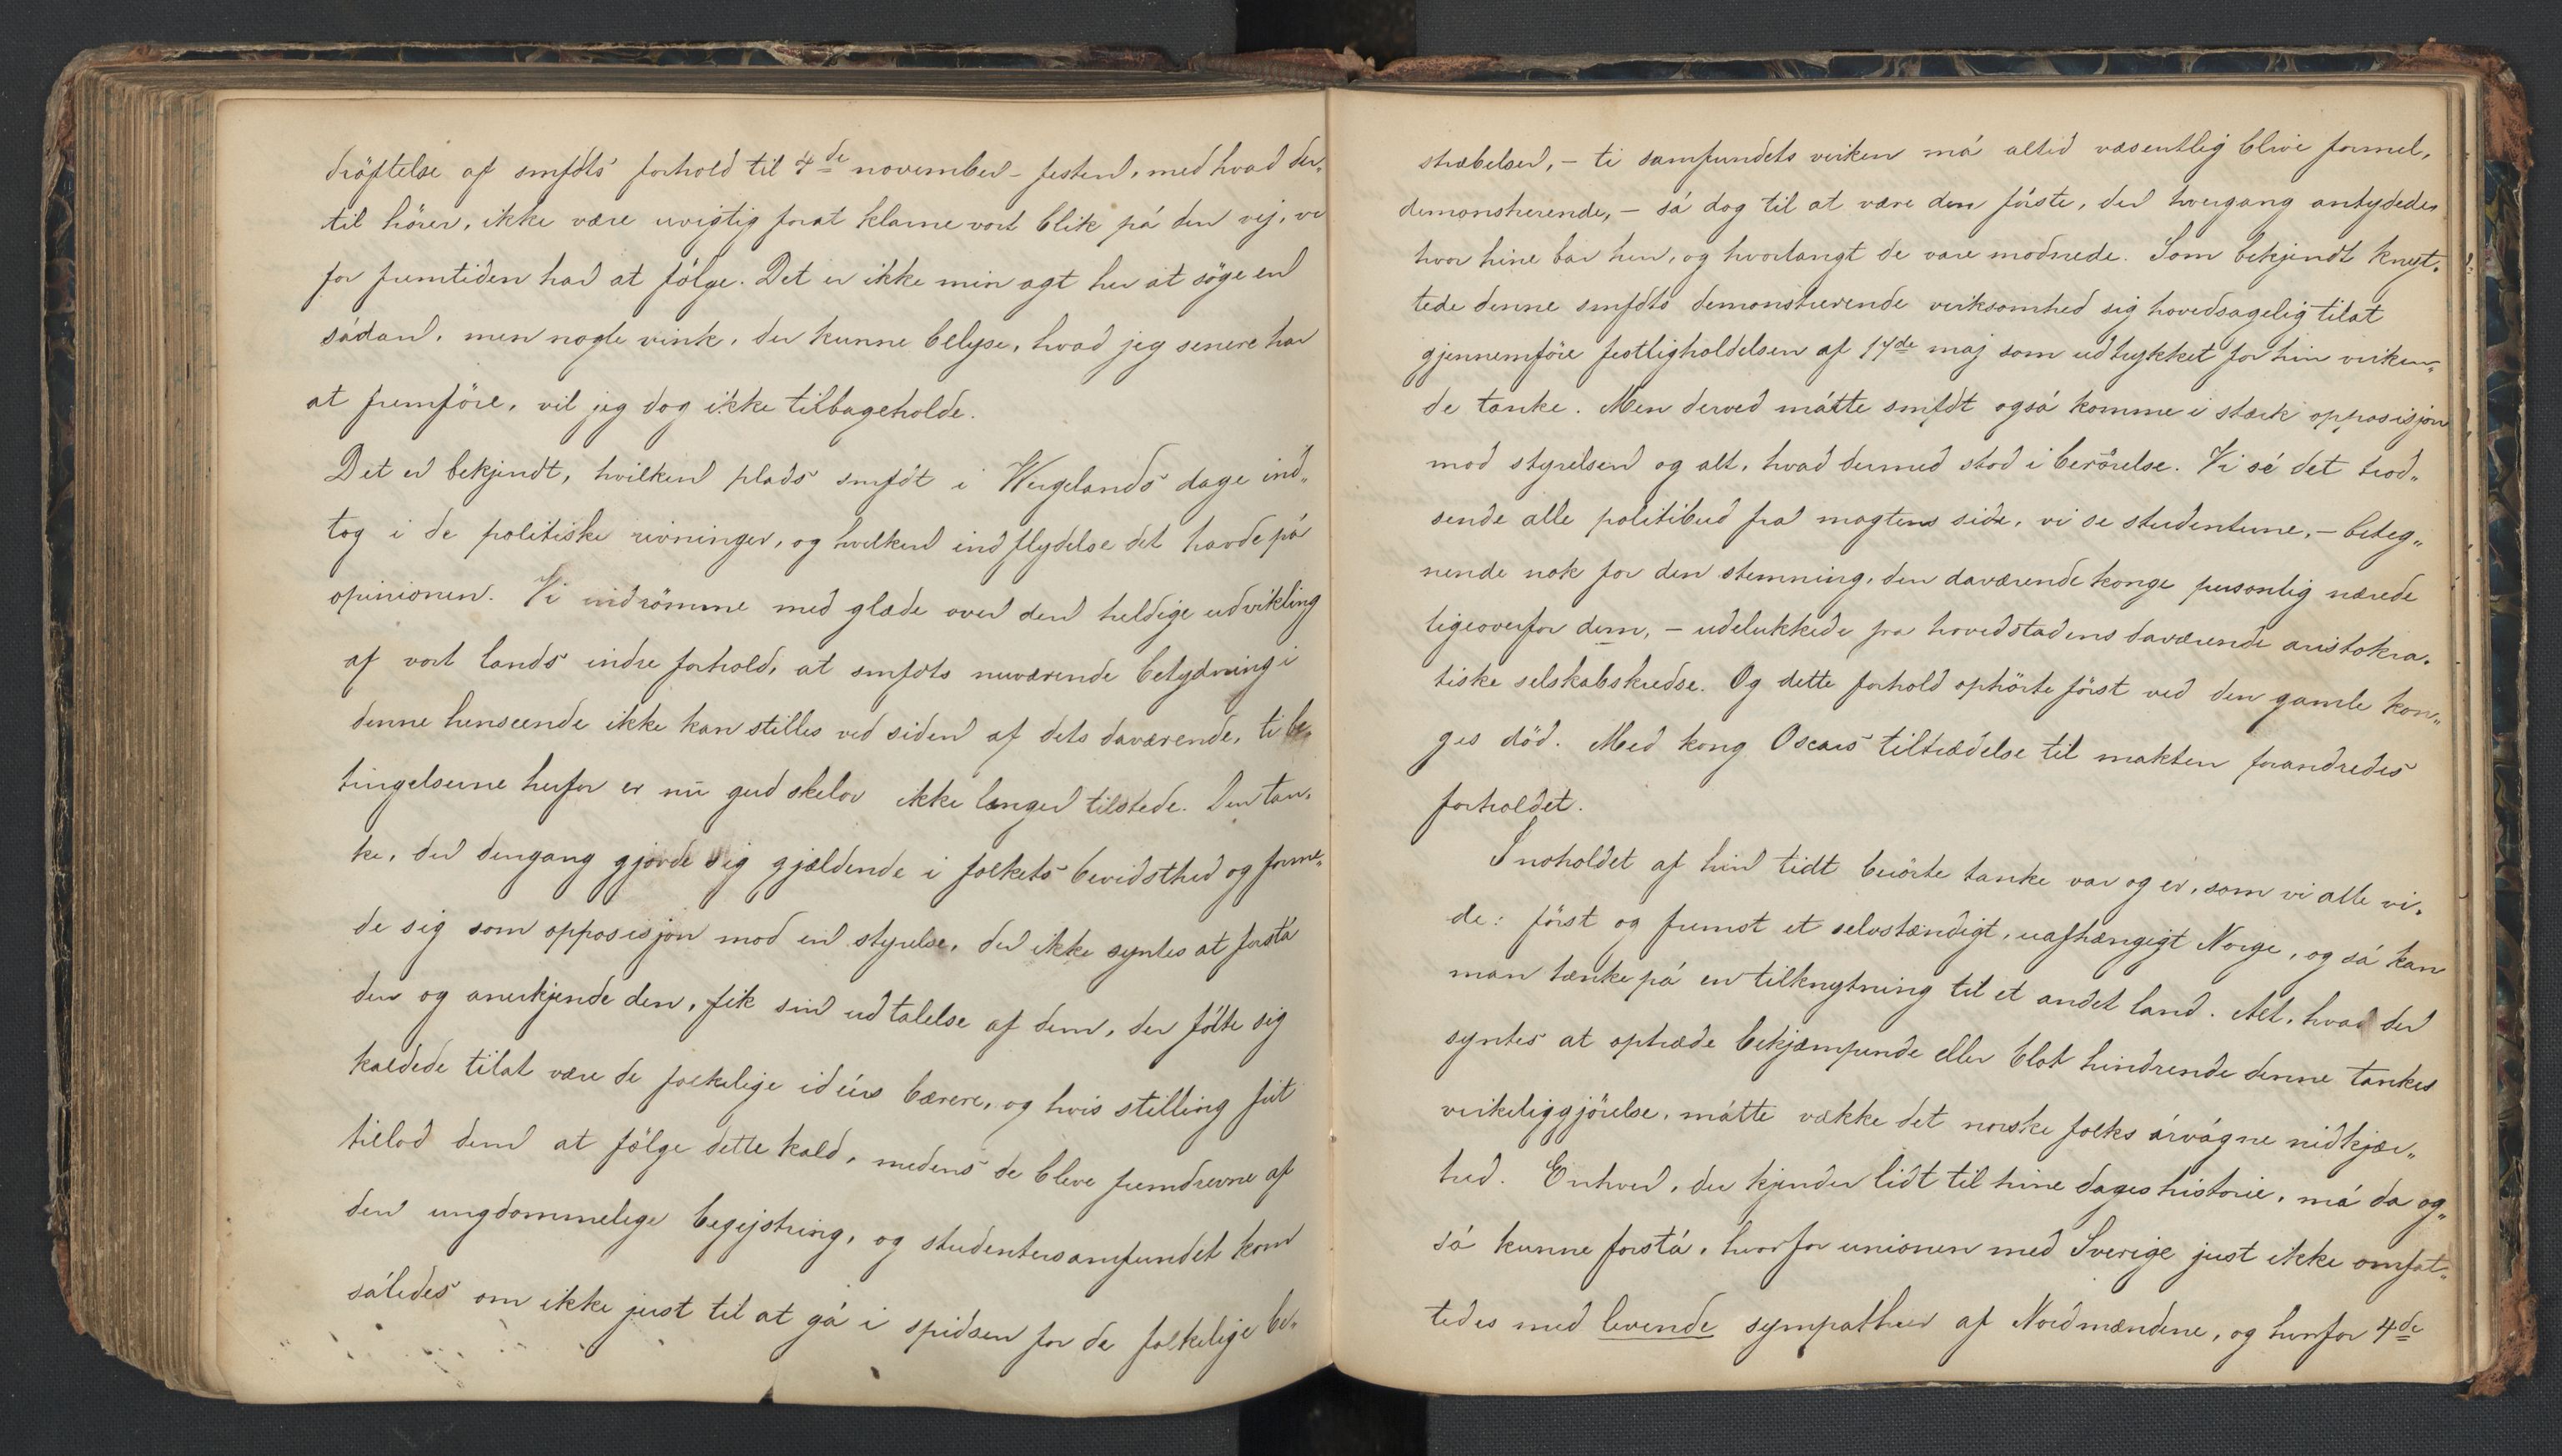 dröftelse af smfdts forhold til 4de november-festen, med hvad der„
til hörer, ikke være uvigtig forat klarne vort blik på den vej, vi
for fremtiden har at fölge. Det er ikke min agt her at söge en
sådan, men nogle vink, der kunne belyse, hvad jeg senere har
at fremföre, vil jeg dog ikke tilbageholde.
Det er bekjendt, hvilken plads smfdt i Wergelands dage ind„
tog i de politiske rivninger, og hvilken indflydelse det havde på
opinionen. Vi indrömme med glæde over den heldige udvikling
af vort lands indre forhold, at smfdts nuværende betydning i
denne henseende ikke kan stilles ved siden af dets daværende, ti be„
tingelserne herfor er nu gud skelov ikke længer tilstede. Den tan„
ke, der dengang gjorde sig gjældende i folkets bevidsthed og forme„
de sig som opposisjon mod en styrelse, der ikke syntes at forstå
den og anerkjende den, fik sin udtalelse af dem, der fölte sig
kaldede tilat være de folkelige idéers bærere, og hvis stilling frit
tillod dem at fölge dette kald, medens de bleve fremdrevne af
den ungdommelige begejstring, og studentersamfundet kom
således om ikke just til at gå i spidsen for de folkelige be„
stræbelser, – ti samfundets virken må altid væsentlig blive formel,
demonstrerende, – så dog til at være den förste, der hvergang antydede,
hvor hine bar hen, og hvorlangt de vare modnede. Som bekjendt knyt„
tede denne smfdts demonstrerende virksomhed sig hovedsagelig tilat
gjennemföre festligholdelsen af 17de maj som udtrykket for hin virken„
de tanke. Men derved måtte smfdt også komme i stærk opposisjon
mod styrelsen og alt, hvad dermed stod i berörelse. Vi sé det trod„
sende alle politibud fra magtens side, vi se studenterne, – beteg„
nende nok for den stemning, den daværende konge personlig nærede
ligeoverfor dem, – udelukkede fra hovedstadens daværende aristokra„
tiske selskabskredse. Og dette forhold ophörte först ved den gamle kon„
ges död. Med kong Oscars tiltrædelse til makten forandredes
forholdet.
Indholdet af hin tidt berörte tanke var og er, som vi alle vi„
de: först og fremst et selvstændigt, uafhængigt Norge, og så kan
man tænke på en tilknytning til et andet land. Alt, hvad der
syntes at optræde bekjæmpende eller blot hindrende denne tankes
virkeliggjörelse, måtte vække det norske folks årvågne nidkjær„
hed. Enhver, der kjender lidt til hine dages historie, må da og„
så kunne forstå, hvorfor unionen med Sverige just ikke omfat„
tedes med levende sympathier af Nordmændene, og hvorfor 4de